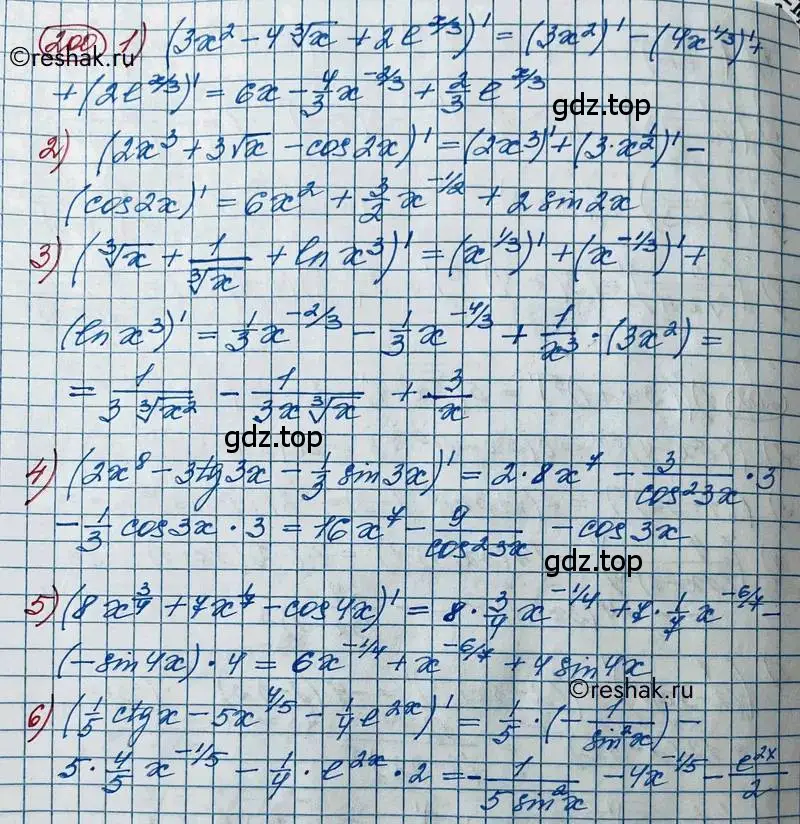 200 1) (3x² - 4∛x + 2e^{x/3})' = (3x²)' - (4x^{1/3})' +
©reshak.ru
+ (2e^{x/3})' = 6x - 4/3 x^{-2/3} + 2/3 e^{x/3}
gdz.top
2) (2x³ + 3√x - cos2x)' = (2x³)' + (3·x^{1/2})' -
(cos2x)' = 6x² + 3/2 x^{-1/2} + 2 sin2x
3) (∛x + 1/∛x + ln x³)' = (x^{1/3})' + (x^{-1/3})' +
(ln x³)' = 1/3 x^{-2/3} - 1/3 x^{-4/3} + 1/x³ · (3x²) =
= 1/(3∛x²) - 1/(3x∛x) + 3/x
gdz.top
4) (2x⁸ - 3tg3x - 1/3 sin3x)' = 2·8x⁷ - 3/cos²3x · 3
- 1/3 cos3x · 3 = 16x⁷ - 9/cos²3x - cos3x
gdz.top
5) (8x^{3/4} + 7x^{1/7} - cos4x)' = 8 · 3/4 x^{-1/4} + 7 · 1/7 x^{-6/7} -
(-sin4x) · 4 = 6x^{-1/4} + x^{-6/7} + 4 sin4x
©reshak.ru
6) (1/5 ctgx - 5x^{4/5} - 1/4 e^{2x})' = 1/5 · (- 1/sin²x) -
5 · 4/5 x^{-1/5} - 1/4 · e^{2x} · 2 = - 1/(5 sin²x) - 4x^{-1/5} - e^{2x}/2